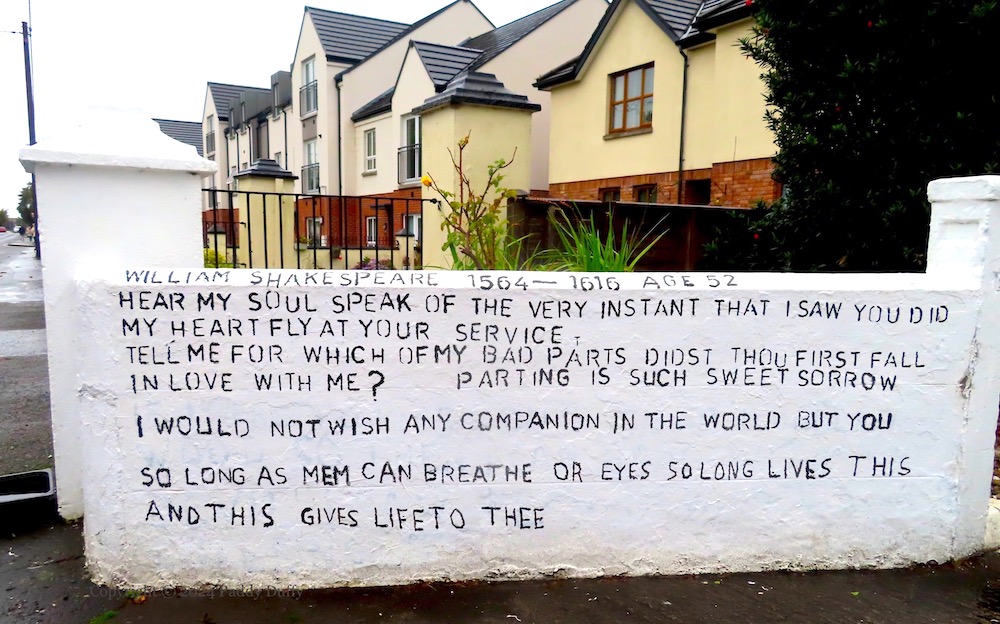 WILLIAM SHAKESPEARE 1564 — 1616 AGE 52
HEAR MY SOUL SPEAK OF THE VERY INSTANT THAT I SAW YOU DID
MY HEART FLY AT YOUR SERVICE.
TELL ME FOR WHICH OF MY BAD PARTS DIDST THOU FIRST FALL
IN LOVE WITH ME? PARTING IS SUCH SWEET SORROW
I WOULD NOT WISH ANY COMPANION IN THE WORLD BUT YOU
SO LONG AS MEM CAN BREATHE OR EYES SO LONG LIVES THIS
AND THIS GIVES LIFE TO THEE
Copyright © 2024 Paddy Duffy